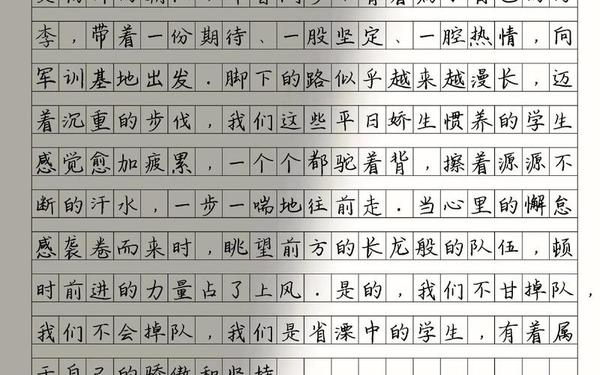 李，带着一份期待、一股坚定、一腔热情，向
军训基地出发．脚下的路似乎越来越漫长，迈
着沉重的步伐，我们这些平日娇生惯养的学生
感觉愈加疲累，一个个都驼着背，擦着源源不
断的汗水，一步一喘地往前走．当心里的懈怠
感袭卷而来时，眺望前方的长龙般的队伍，顿
时前进的力量占了上风．是的，我们不甘掉队，
我们不会掉队，我们是省溧中的学生，有着属
于自己的骄傲和坚持